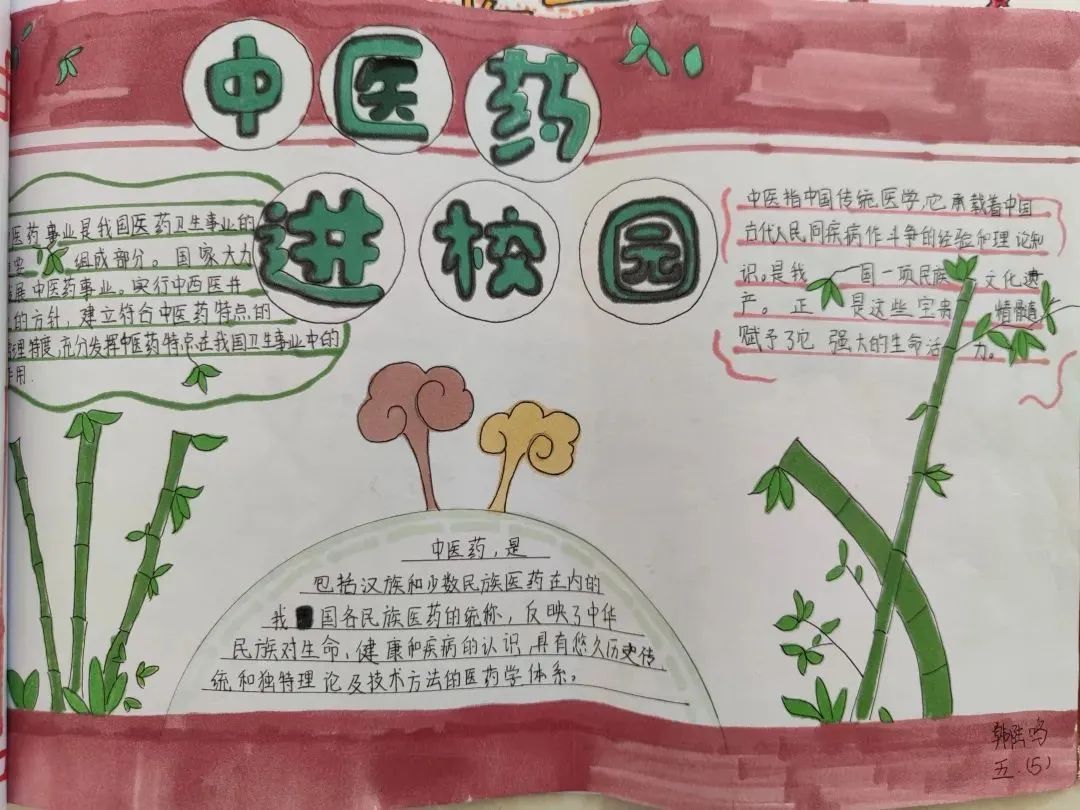 中医药
进校园
医药事业是我国医药卫生事业的
组成部分。国家大力
展中医药事业。实行中西医并
的方针，建立符合中医药特点的
理制度，充分发挥中医药特点在我国卫生事业中的
作用.
中医指中国传统医学，它承载着中国
古代人民同疾病作斗争的经验和理论知
识。是我国一项民族文化遗
产。正是这些宝贵精髓
赋予了它强大的生命活力。
中医药，是
包括汉族和少数民族医药在内的
我国各民族医药的统称，反映了中华
民族对生命、健康和疾病的认识，具有悠久历史传
统和独特理论及技术方法的医药学体系。
韩
五.(5)